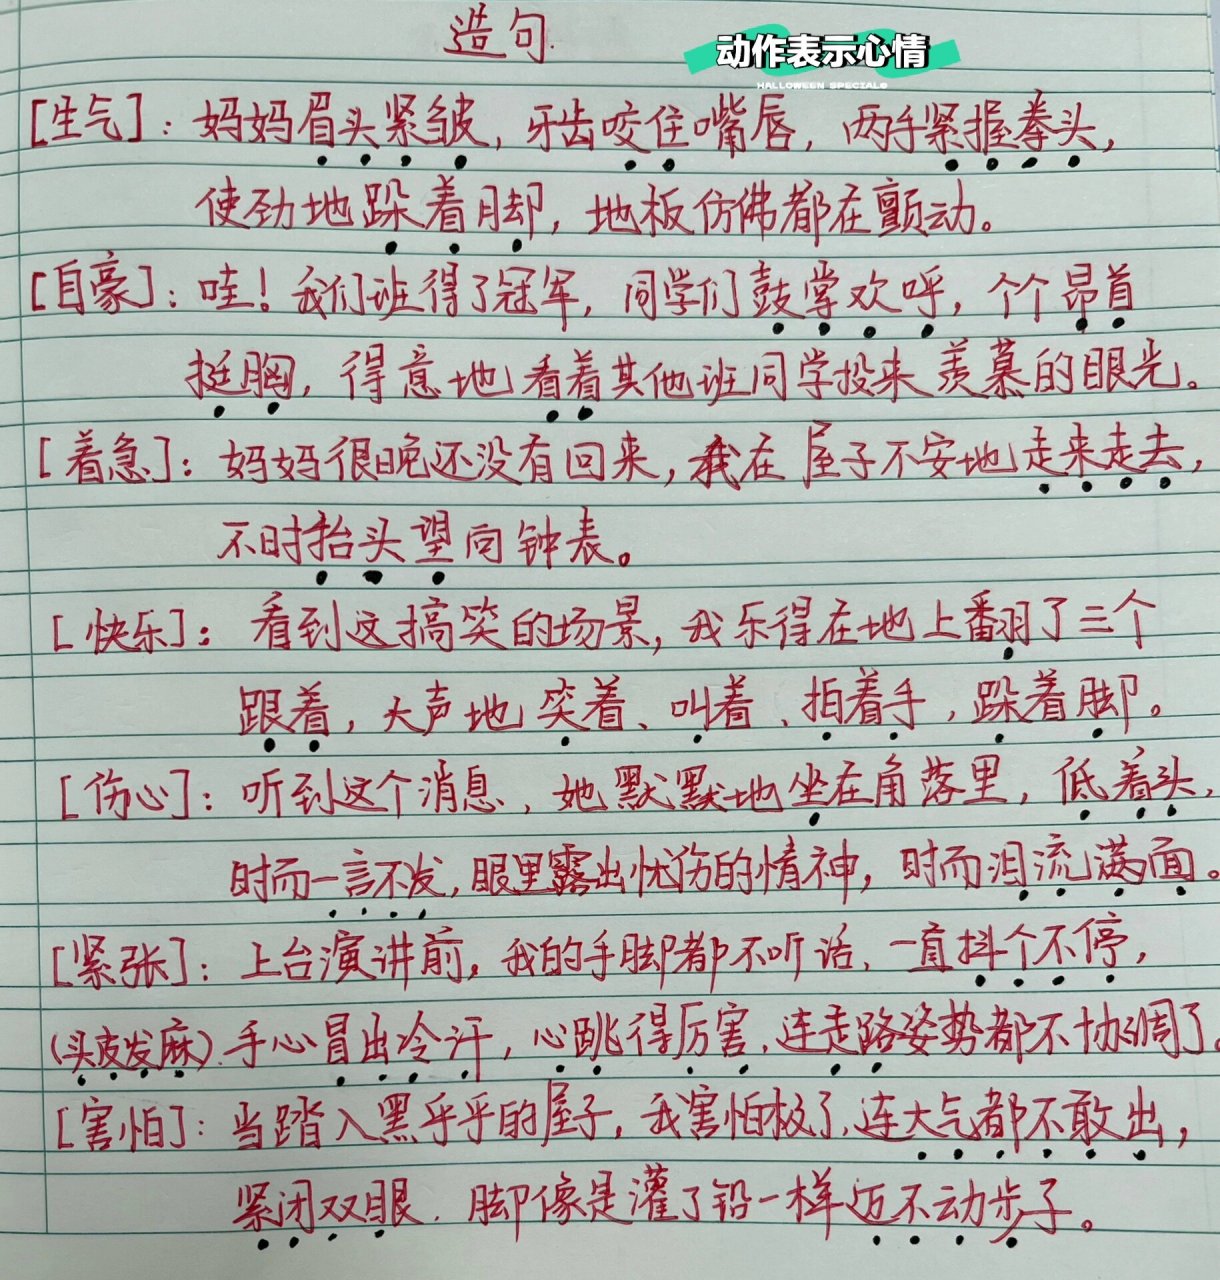 造句.
动作表示心情
HALLOWEEN SPECIALS
[生气]：妈妈眉头紧皱，牙齿咬住嘴唇，两手紧握拳头，
使劲地跺着脚，地板仿佛都在颤动。
[自豪]：哇！我们班得了冠军，同学们鼓掌欢呼，个个昂首
挺胸，得意地看着其他班同学投来羡慕的眼光。
[着急]：妈妈很晚还没有回来，我在屋子不安地走来走去，
不时抬头望向钟表。
[快乐]：看到这搞笑的场景，我乐得在地上翻了三个
跟着，大声地笑着、叫着、拍着手，跺着脚。
[伤心]：听到这个消息，她默默地坐在角落里，低着头，
时而一言不发，眼里露出忧伤的情神，时而泪流满面。
[紧张]：上台演讲前，我的手脚都不听话，一直抖个不停，
(头皮发麻).手心冒出冷汗，心跳得厉害，连走路姿势都不协调了。
[害怕]：当踏入黑乎乎的屋子，我害怕极了，连大气都不敢出，
紧闭双眼．脚像是灌了铅一样迈不动步子。